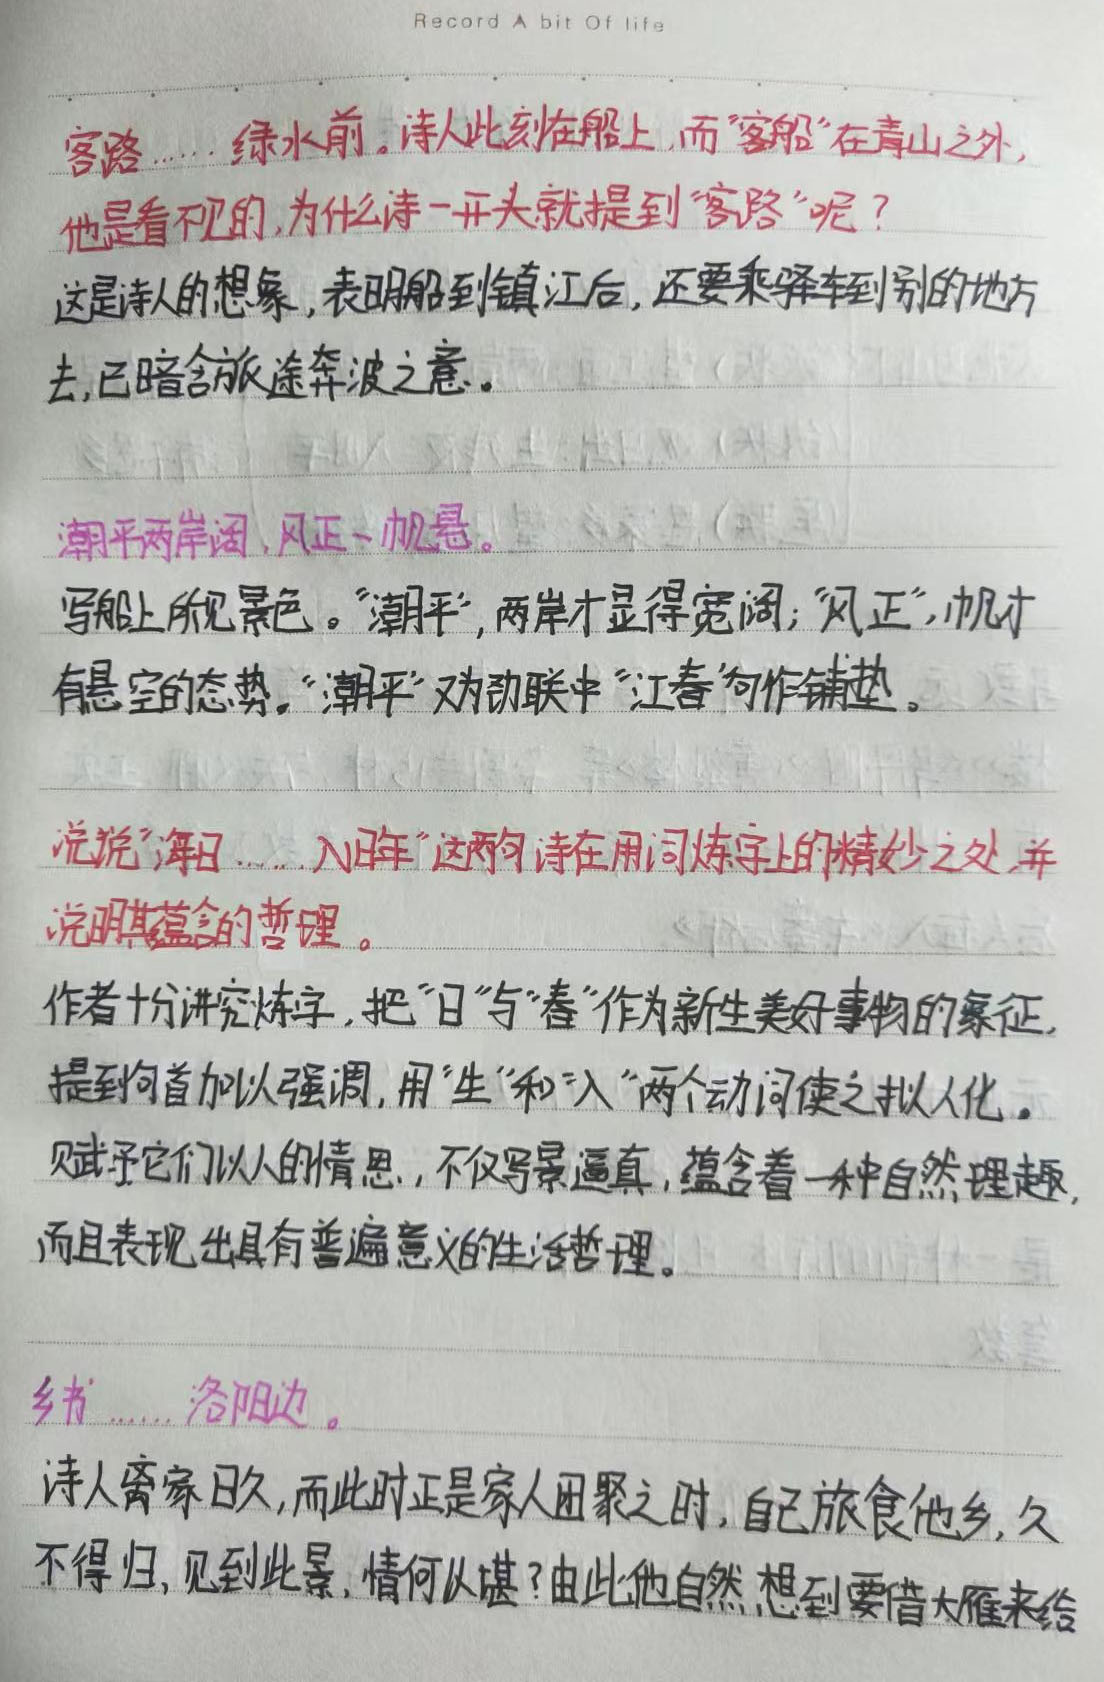 Record A bit Of life
客路……绿水前。诗人此刻在船上,而"客船"在青山之外,
他是看不见的,为什么诗一开头就提到"客路"呢?
这是诗人的想象,表明船到镇江后,还要乘驿车到别的地方
去,已暗含旅途奔波之意。
潮平两岸阔,风正一帆悬。
写船上所见景色。"潮平",两岸才显得宽阔;"风正",帆才
有悬空的态势。"潮平"又为颈联中"江春"句作铺垫。
说说"海日……入旧年"这两句诗在用词炼字上的精妙之处,并
说明其蕴含的哲理。
作者十分讲究炼字,把"日"与"春"作为新生美好事物的象征,
提到句首加以强调,用"生"和"入"两个动词使之拟人化。
赋予它们以人的情思,不仅写景逼真,蕴含着一种自然理趣,
而且表现出具有普遍意义的生活哲理。
乡书……洛阳边。
诗人离家日久,而此时正是家人团聚之时,自己旅食他乡,久
不得归,见到此景,情何以堪?由此他自然想到要借大雁来给